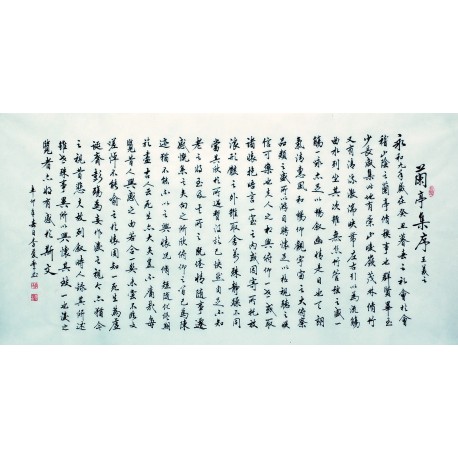 蘭亭集序 王羲之
永和九年歲在癸丑暮春之初會於會
稽山陰之蘭亭修禊事也群賢畢至
少長咸集此地有崇山峻嶺茂林修竹
又有清流激湍映帶左右引以為流觴
曲水列坐其次雖無絲竹管弦之盛一
觴一詠亦足以暢敘幽情是日也天朗
氣清惠風和暢仰觀宇宙之大俯察
品類之盛所以遊目騁懷足以極視聽之娛
信可樂也夫人之相與俯仰一世或取
諸懷抱晤言一室之內或因寄所託放
浪形骸之外雖取舍萬殊靜躁不同
當其欣於所遇暫得於己快然自足不知
老之將至及其所之既倦情隨事遷
感慨係之矣向之所欣俯仰之間已為陳
跡猶不能不以之興懷況修短隨化終期
於盡古人云死生亦大矣豈不痛哉每
覽昔人興感之由若合一契未嘗不臨文
嗟悼不能喻之於懷固知一死生為虛
誕齊彭殤為妄作後之視今亦猶今
之視昔悲夫故列敘時人錄其所述
雖世殊事異所以興懷其致一也後之
覽者亦有感於斯文
辛卯年春日李